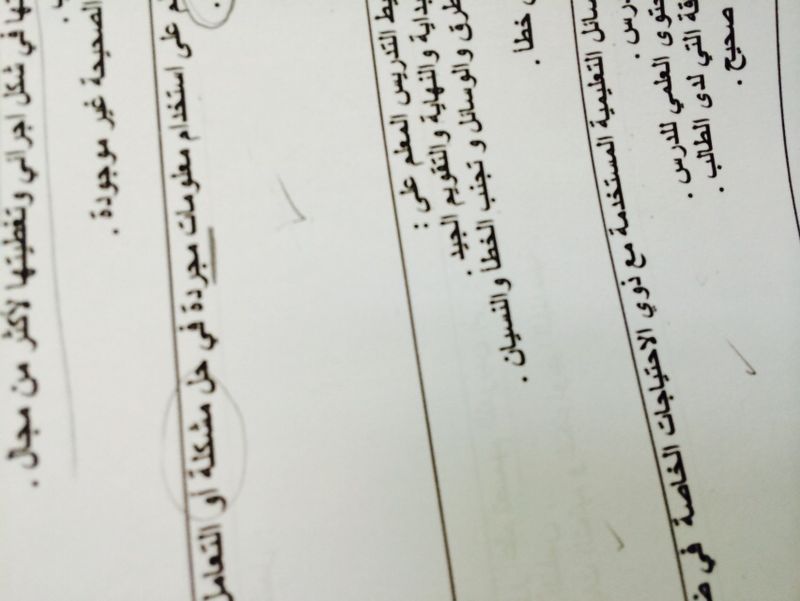 في شكل اجرائي وتغطيتها لأكثر من مجال .
الصحيحة غير موجودة .
على استخدام معلومات مجردة في حل مشكلة او التعامل
التدريس المعلم على :
والنهاية والتقويم الجيد .
والوسائل وتجنب الخطأ والنسيان .
خطأ .
التعليمية المستخدمة مع ذوي الاحتياجات الخاصة في
العلمي للدرس .
التي لدى الطالب .
صحيح .